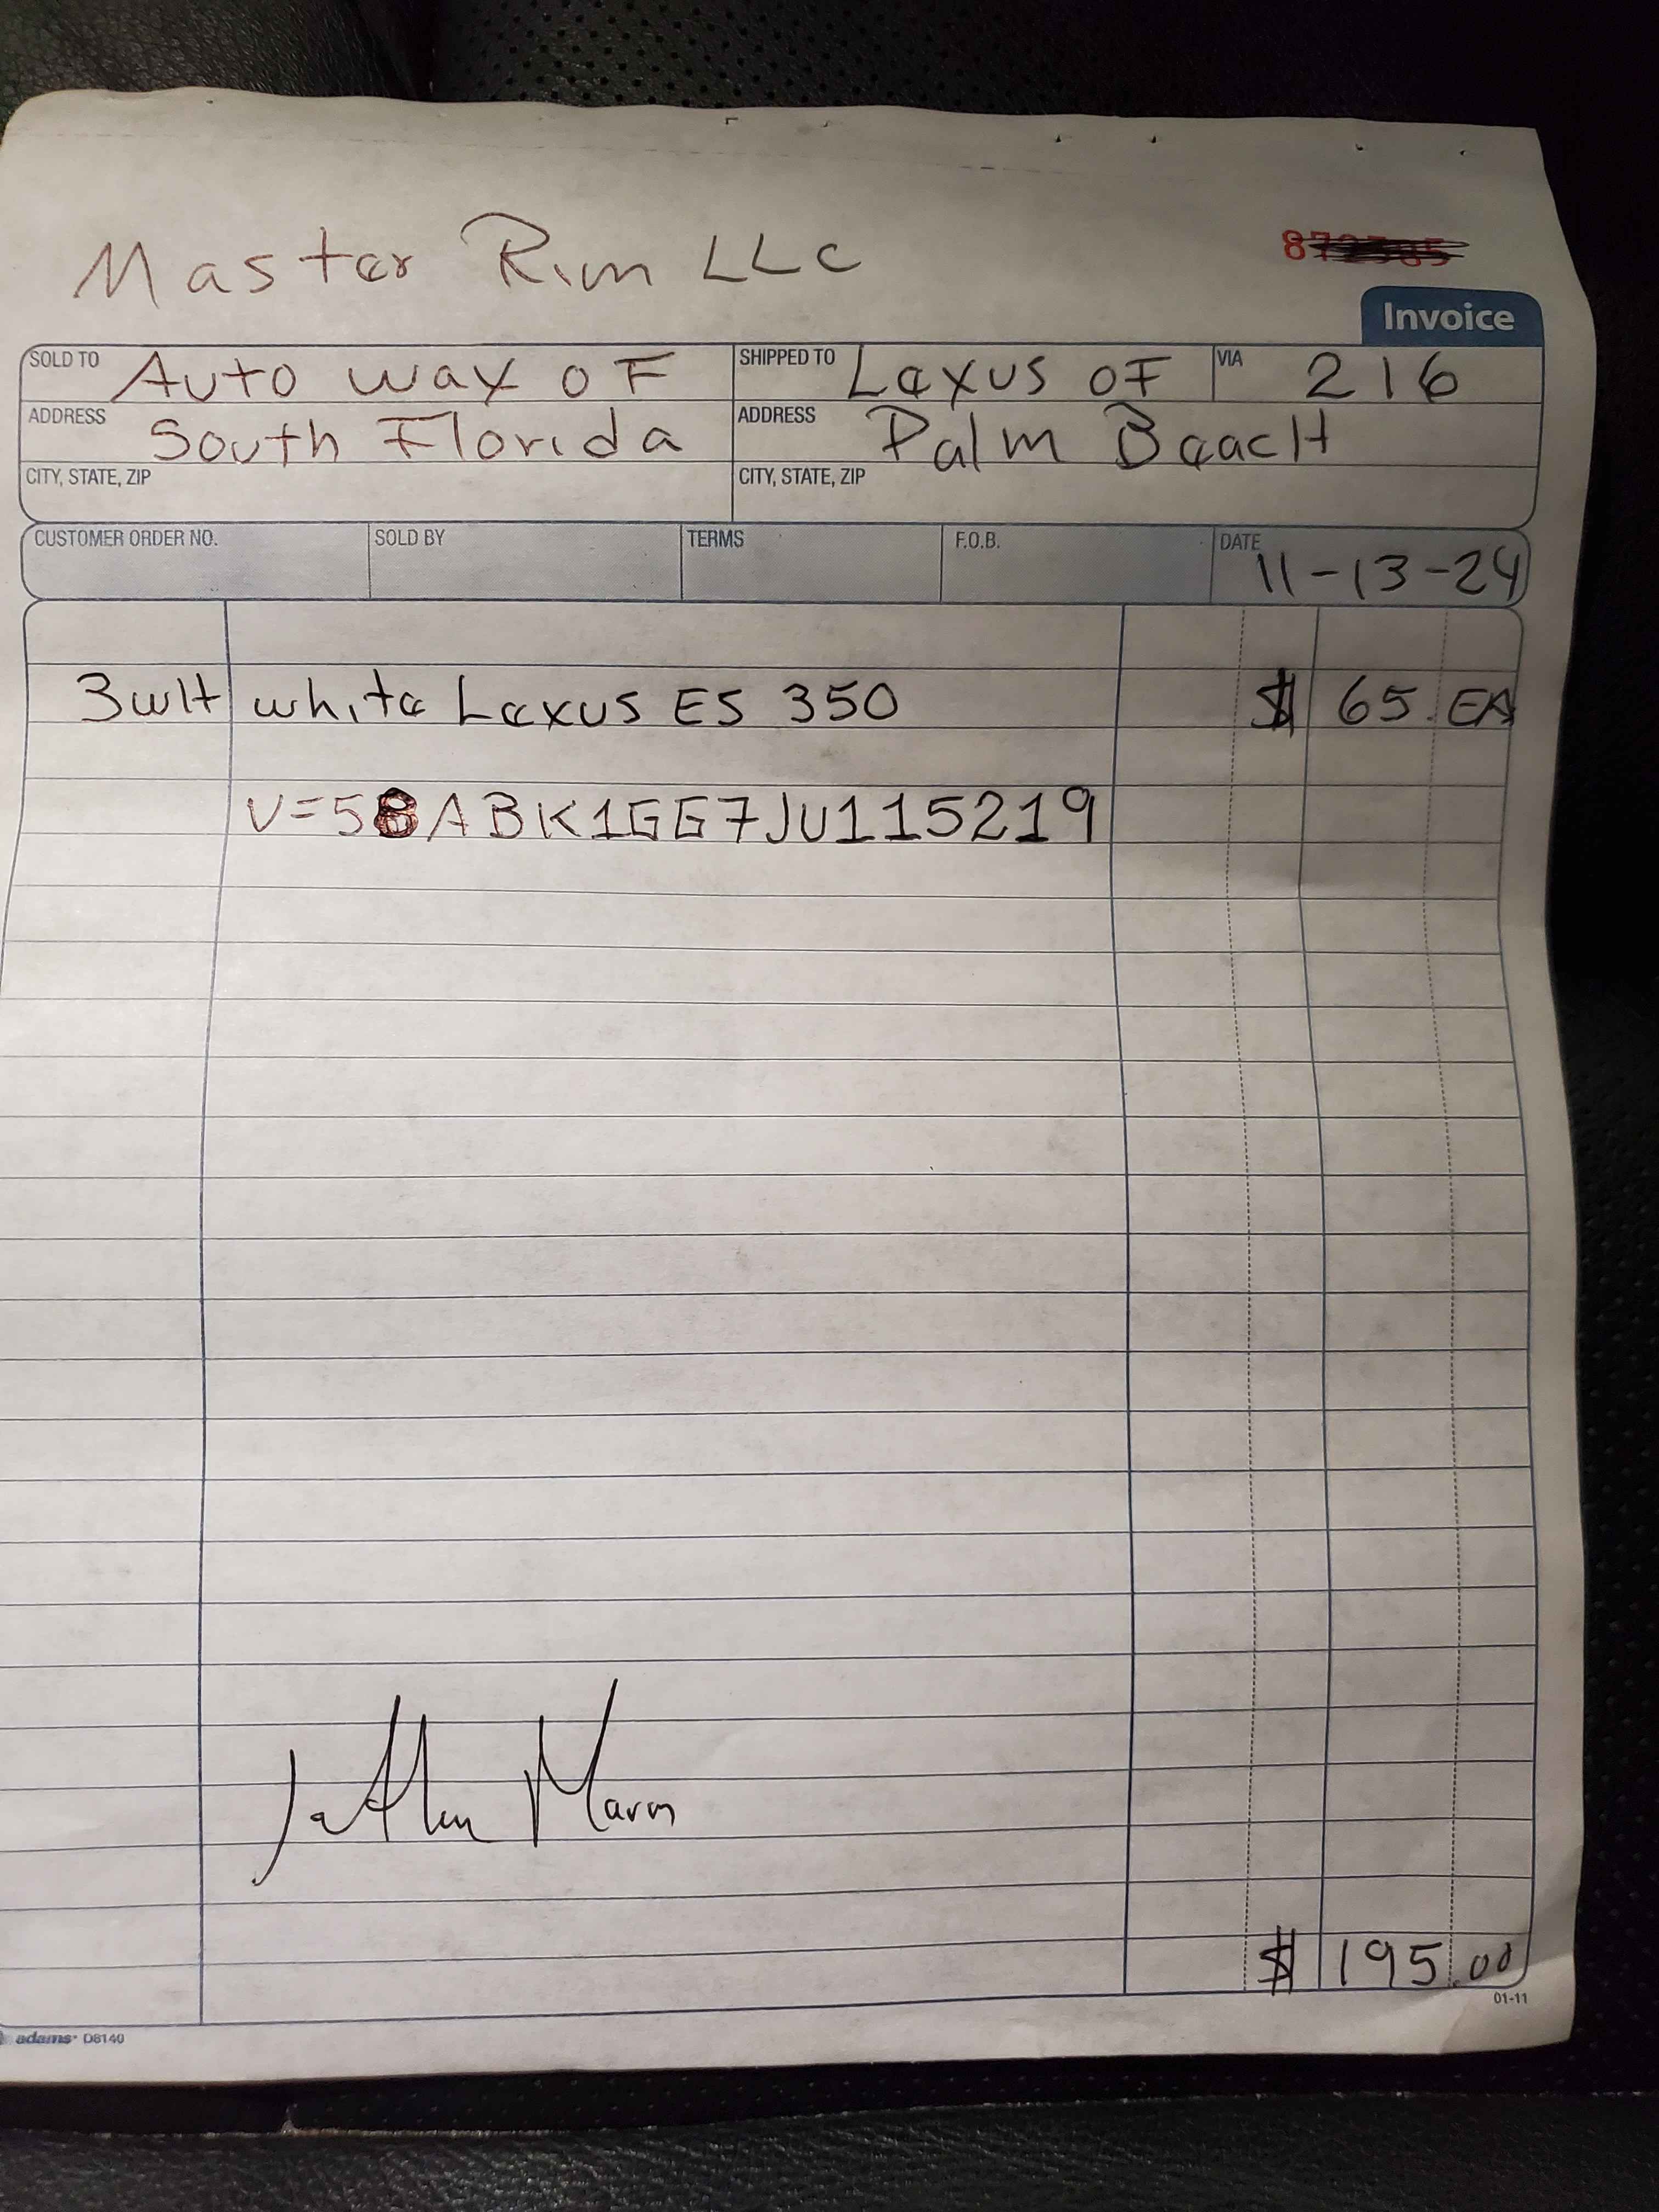 Master Rim LLC
Invoice
SOLD TO Auto way of SHIPPED TO Lexus of VIA 216
ADDRESS South Florida ADDRESS Palm Beach
CITY, STATE, ZIP CITY, STATE, ZIP
CUSTOMER ORDER NO. SOLD BY TERMS F.O.B. DATE 11-13-24
3 WH white Lexus ES 350 $ 65. EA
V=58ABK1GG7JU115219
$ 195.00
01-11
adams D8140